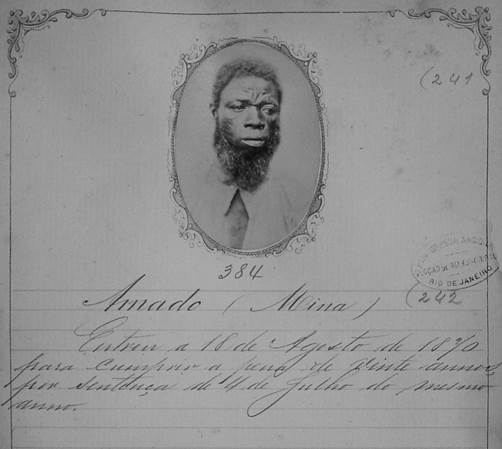 (241
384
Amado (Mina)
(242
RIO DE JANEIRO
Entrou a 18 de Agosto de 1870
para cumprir a pena de vinte annos,
por sentença de 4 de Julho do mesmo
anno.